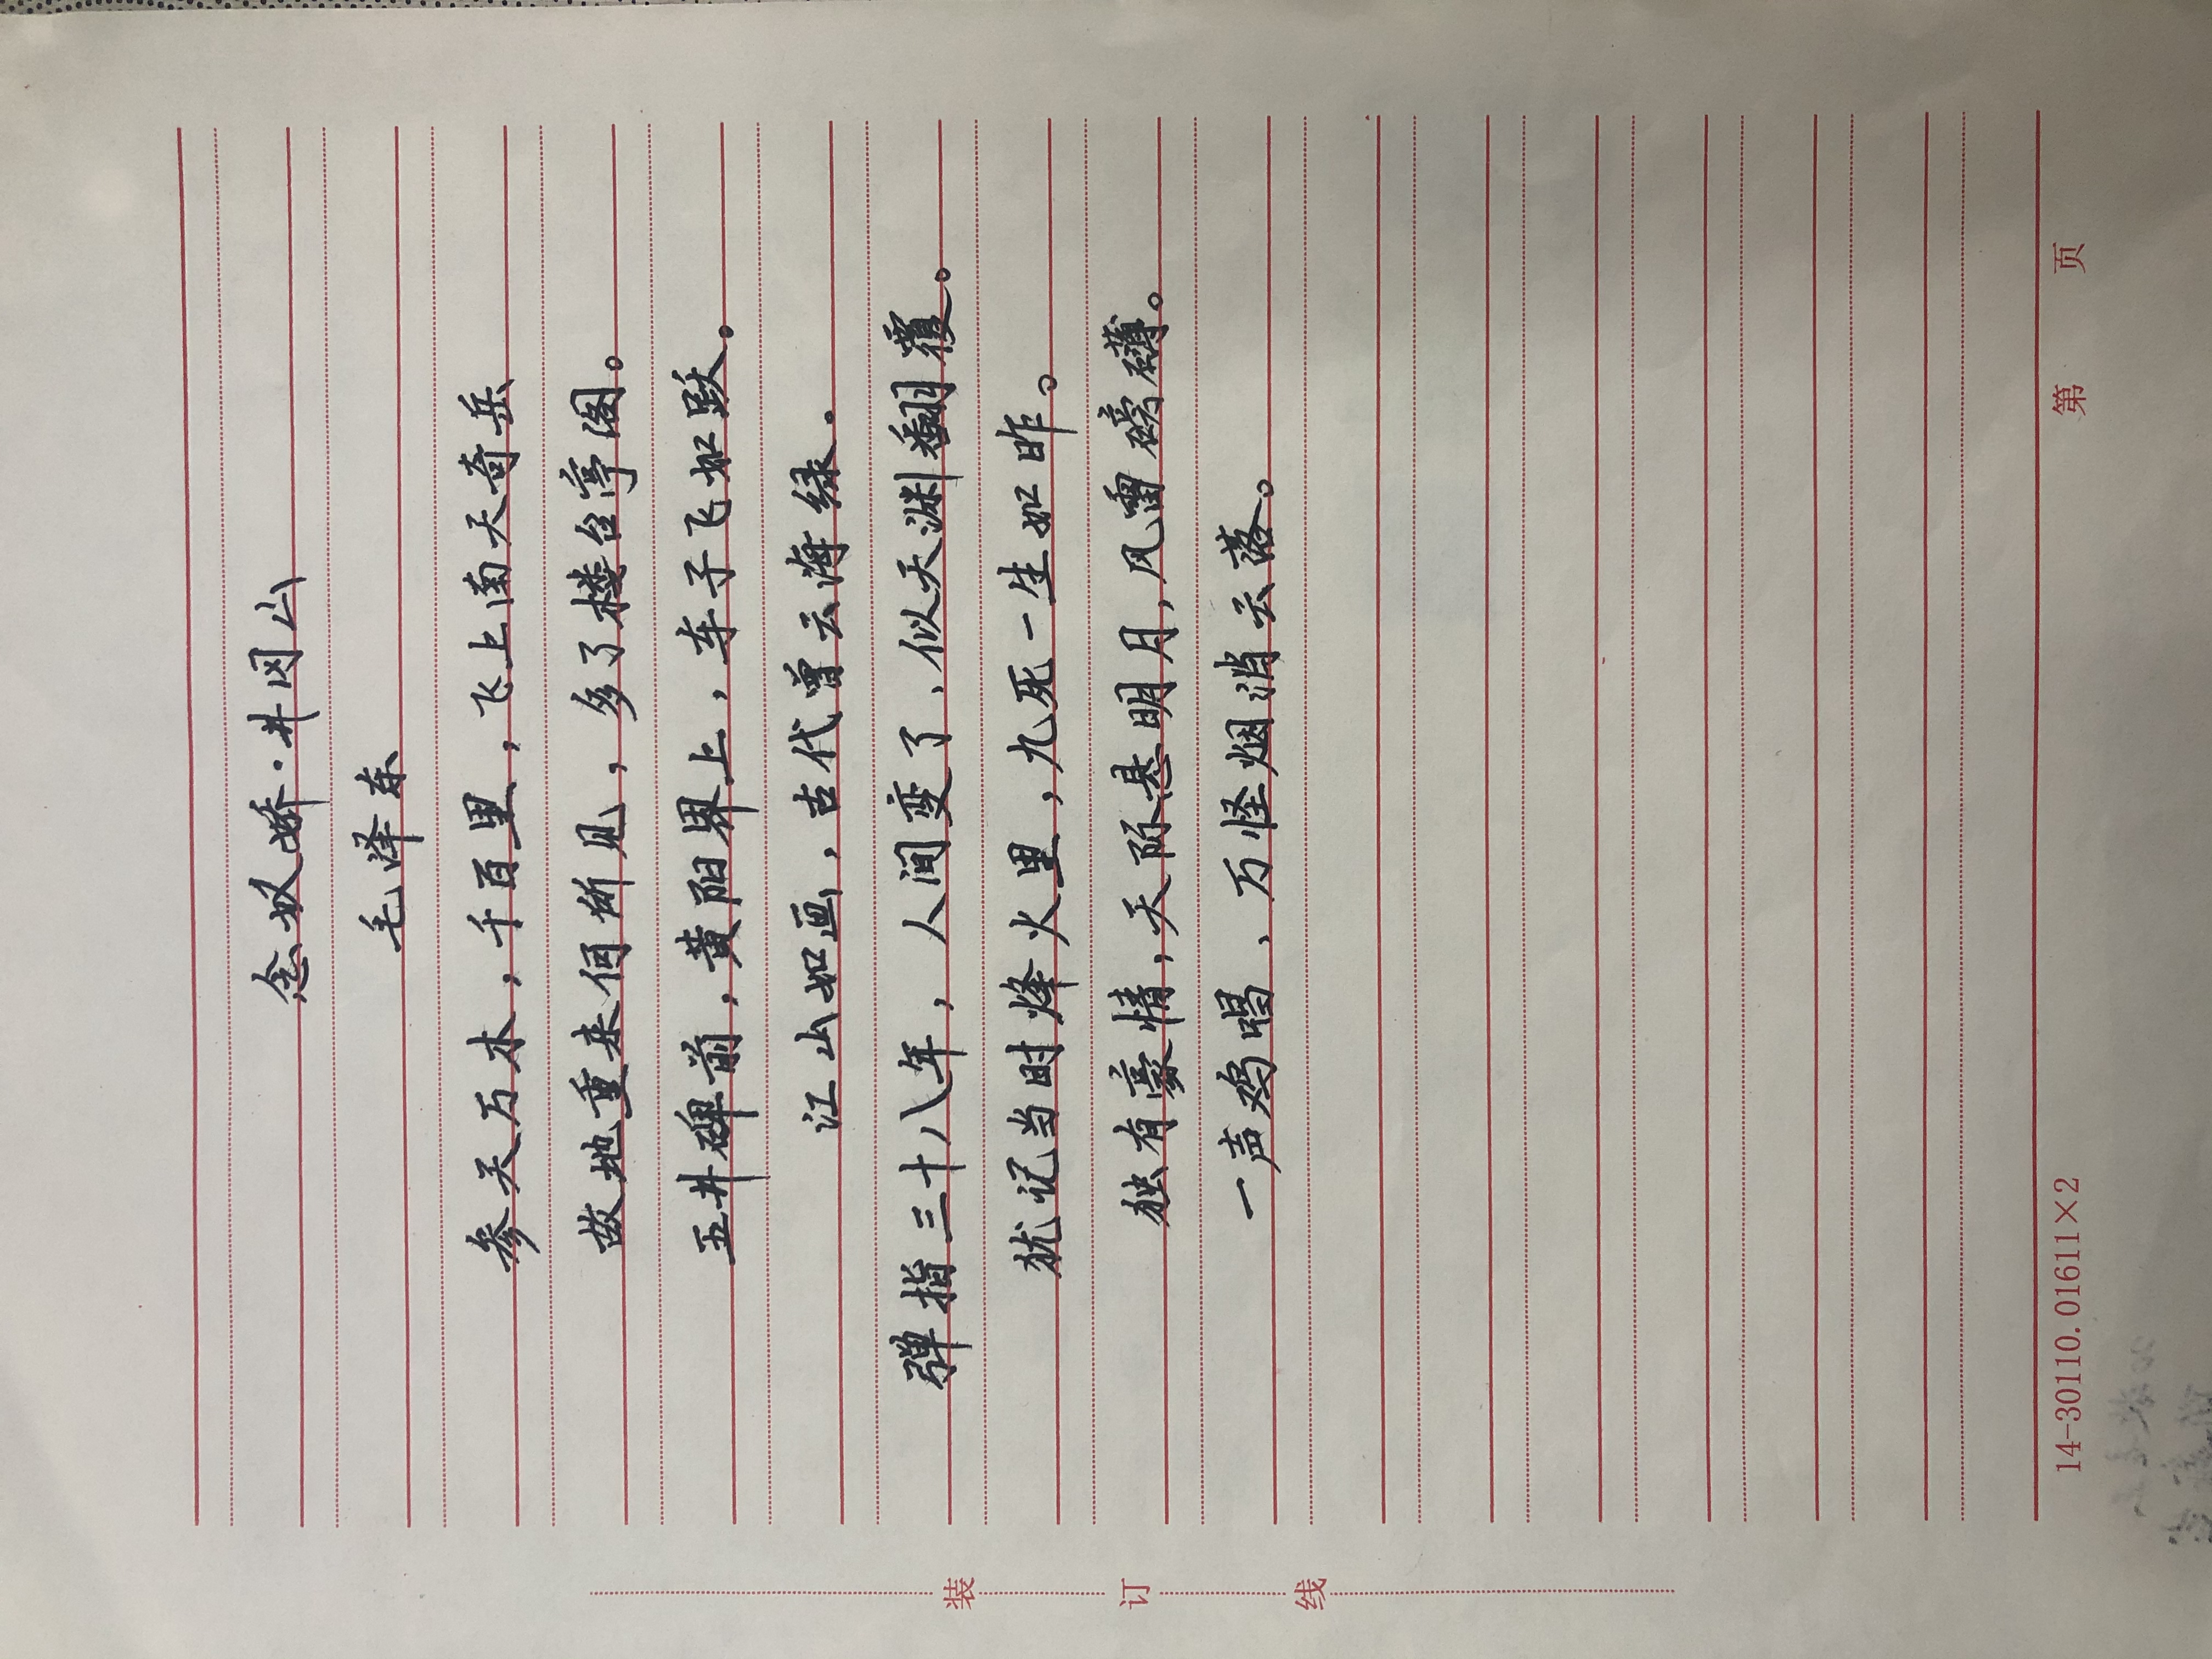 念奴娇·井冈山
毛泽东
参天万木，千百里，飞上南天奇岳
故地重来何所见，多了楼台亭阁。
五井碑前，黄阳界上，车子飞如跃。
江山如画，古代曾云海绿．
弹指三十八年，人间变了、似天渊翻覆。
犹记当时烽火里，九死一生如昨。
独有豪情，天际悬明月，风雷磅礴。
一声鸡唱、万怪烟消云落。
装订线
14-30110.01611×2 第 页